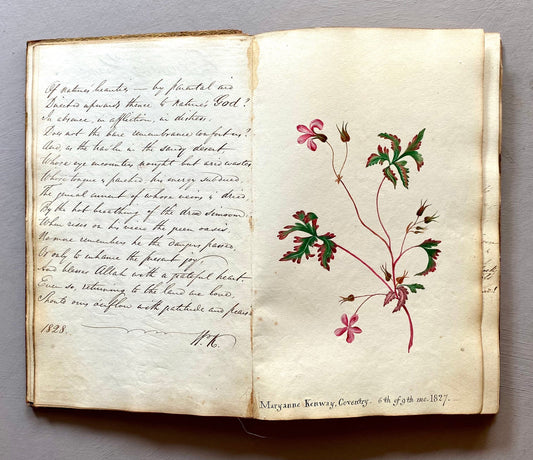 Of natures beauties — by parental aid
Directed upwards thence to Nature's God?
In absence, in affliction, in distress,
Does not the bare remembrance comfort us?
And, as the in the sandy desert
Whose eye encounters nought but arid wastes
Whose tongue is parched his energy subdued
The genial current of whose veins is dried
By the hot breathing of the dread simoom,
When rises on his view the green oasis,
No more remembers he the dangers passed,
Or only to enhance the present joy
And blesses Allah with a grateful heart.
Even so, returning to the land we love,
ours overflow with gratitude and
1828.
H.K.
Maryanne Kenway, Coventry. 6th of 9th mo. 1827.